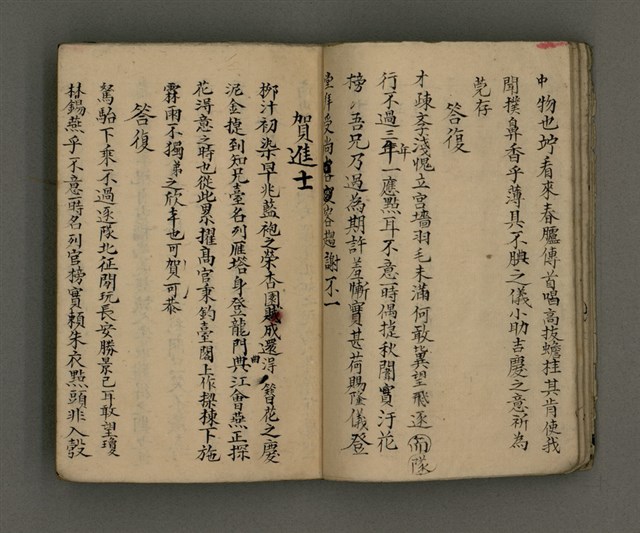 中物也竚看來春臚傳首唱高扳蟾桂其肯使我
聞撲鼻香乎薄具不腆之儀小助吉慶之意祈為
莞存
答復
才疎李淺愧立宮墻羽毛未滿何敢冀望飛逐而隊
行不過三年年一應點耳不意一時偶捷秋闈實汙花
榜吾兄乃過為期許羞慚實甚荷賜隆儀登
堂拜受尚容趨謝不一
賀進士
栁汁初染早兆藍袍之榮杏園成還淂簪花之慶
泥金捷到知兄臺名列雁塔身登龍門典江會燕正探
花淂意之時也從此累擢高官秉釣臺閣上作樑棟下施
霖雨不獨弟之欣羊也可賀可恭
答復
駑駘下乘不過逐隊北征閒玩長安勝景已耳敢望瓊
林錫燕乎不意一時名列官榜實頼朱衣點頭非入彀